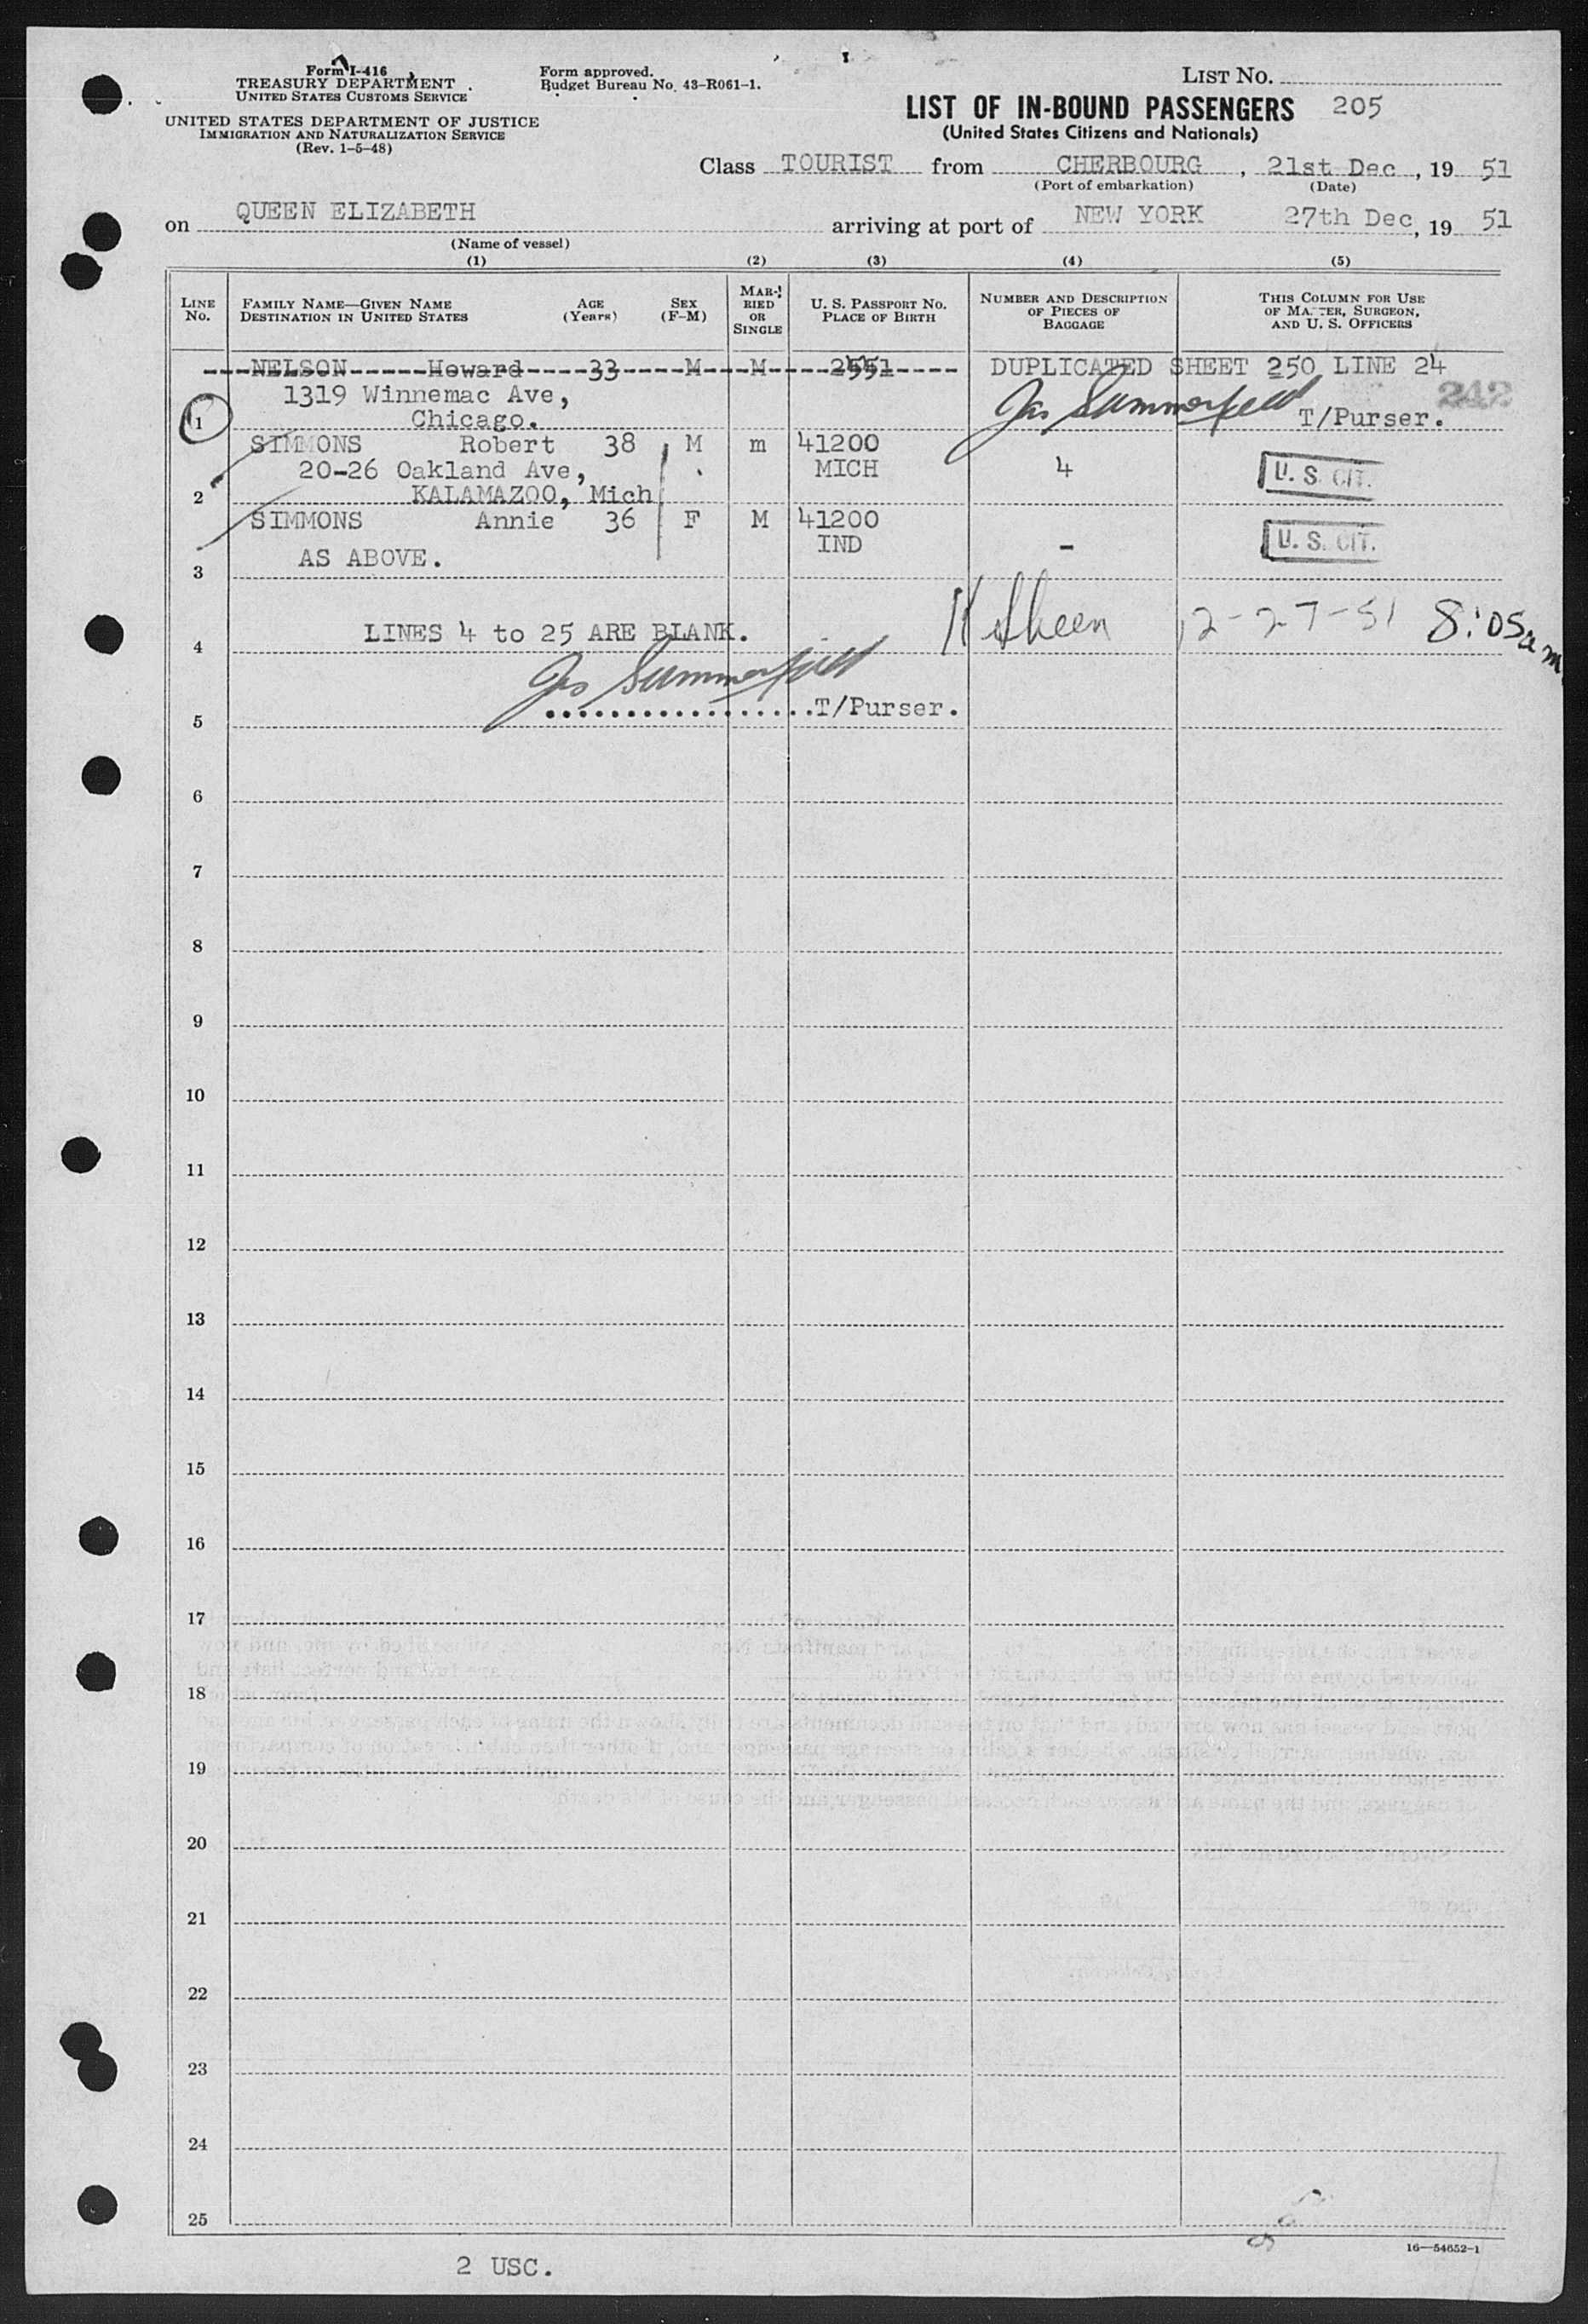 Form I-416
TREASURY DEPARTMENT
UNITED STATES CUSTOMS SERVICE
UNITED STATES DEPARTMENT OF JUSTICE
IMMIGRATION AND NATURALIZATION SERVICE
(Rev. 1-5-48)
Form approved.
Budget Bureau No. 43-R061-1.
LIST NO.
LIST OF IN-BOUND PASSENGERS 205
(United States Citizens and Nationals)
Class TOURIST from CHERBOURG, 21st Dec, 19 51
(Port of embarkation) (Date)
on QUEEN ELIZABETH arriving at port of NEW YORK 27th Dec, 19 51
(Name of vessel)
(1) (2) (3) (4) (5)
LINE No. FAMILY NAME—GIVEN NAME DESTINATION IN UNITED STATES AGE (Years) SEX (F-M) MARRIED OR SINGLE U. S. PASSPORT NO. PLACE OF BIRTH NUMBER AND DESCRIPTION OF PIECES OF BAGGAGE THIS COLUMN FOR USE OF MASTER, SURGEON, AND U. S. OFFICERS
NELSON Howard 33 M M DUPLICATED SHEET 250 LINE 24
1319 Winnemac Ave, 242
1 Chicago. Jas Summerfield T/Purser.
SIMMONS Robert 38 M m 41200
20-26 Oakland Ave, MICH 4 U. S. CIT.
2 KALAMAZOO, Mich
SIMMONS Annie 36 F M 41200
IND - U. S. CIT.
AS ABOVE.
3
12-27-51 8:05am
LINES 4 to 25 ARE BLANK.
4
Jas Summerfield
.................T/Purser.
5
6
7
8
9
10
11
12
13
14
15
16
17
18
19
20
21
22
23
24
25
16—54652-1
2 USC.